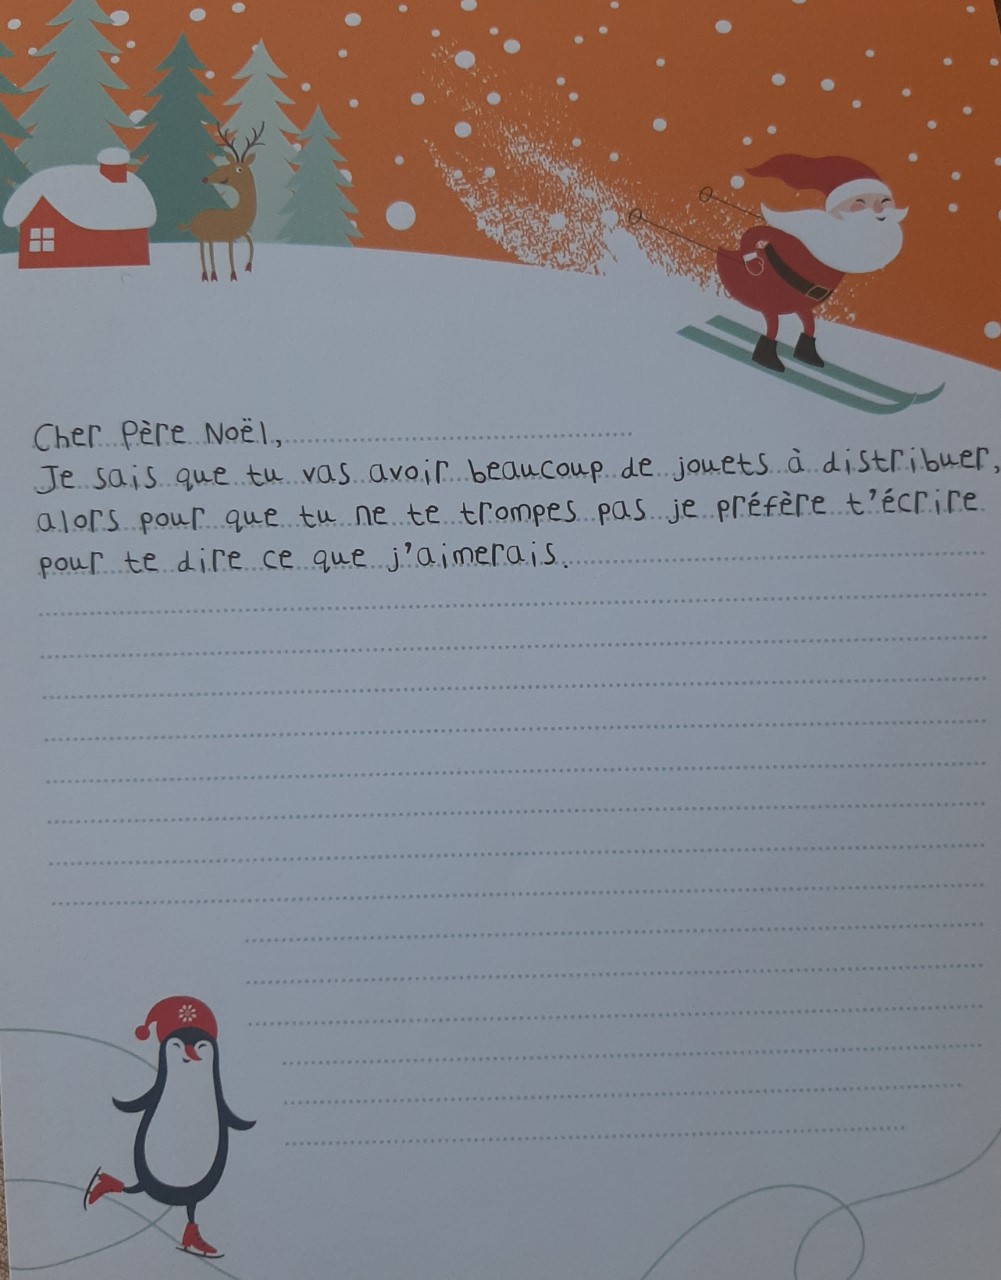 Cher Père Noël,
Je sais que tu vas avoir beaucoup de jouets à distribuer,
alors pour que tu ne te trompes pas je préfère t'écrire
pour te dire ce que j'aimerais.